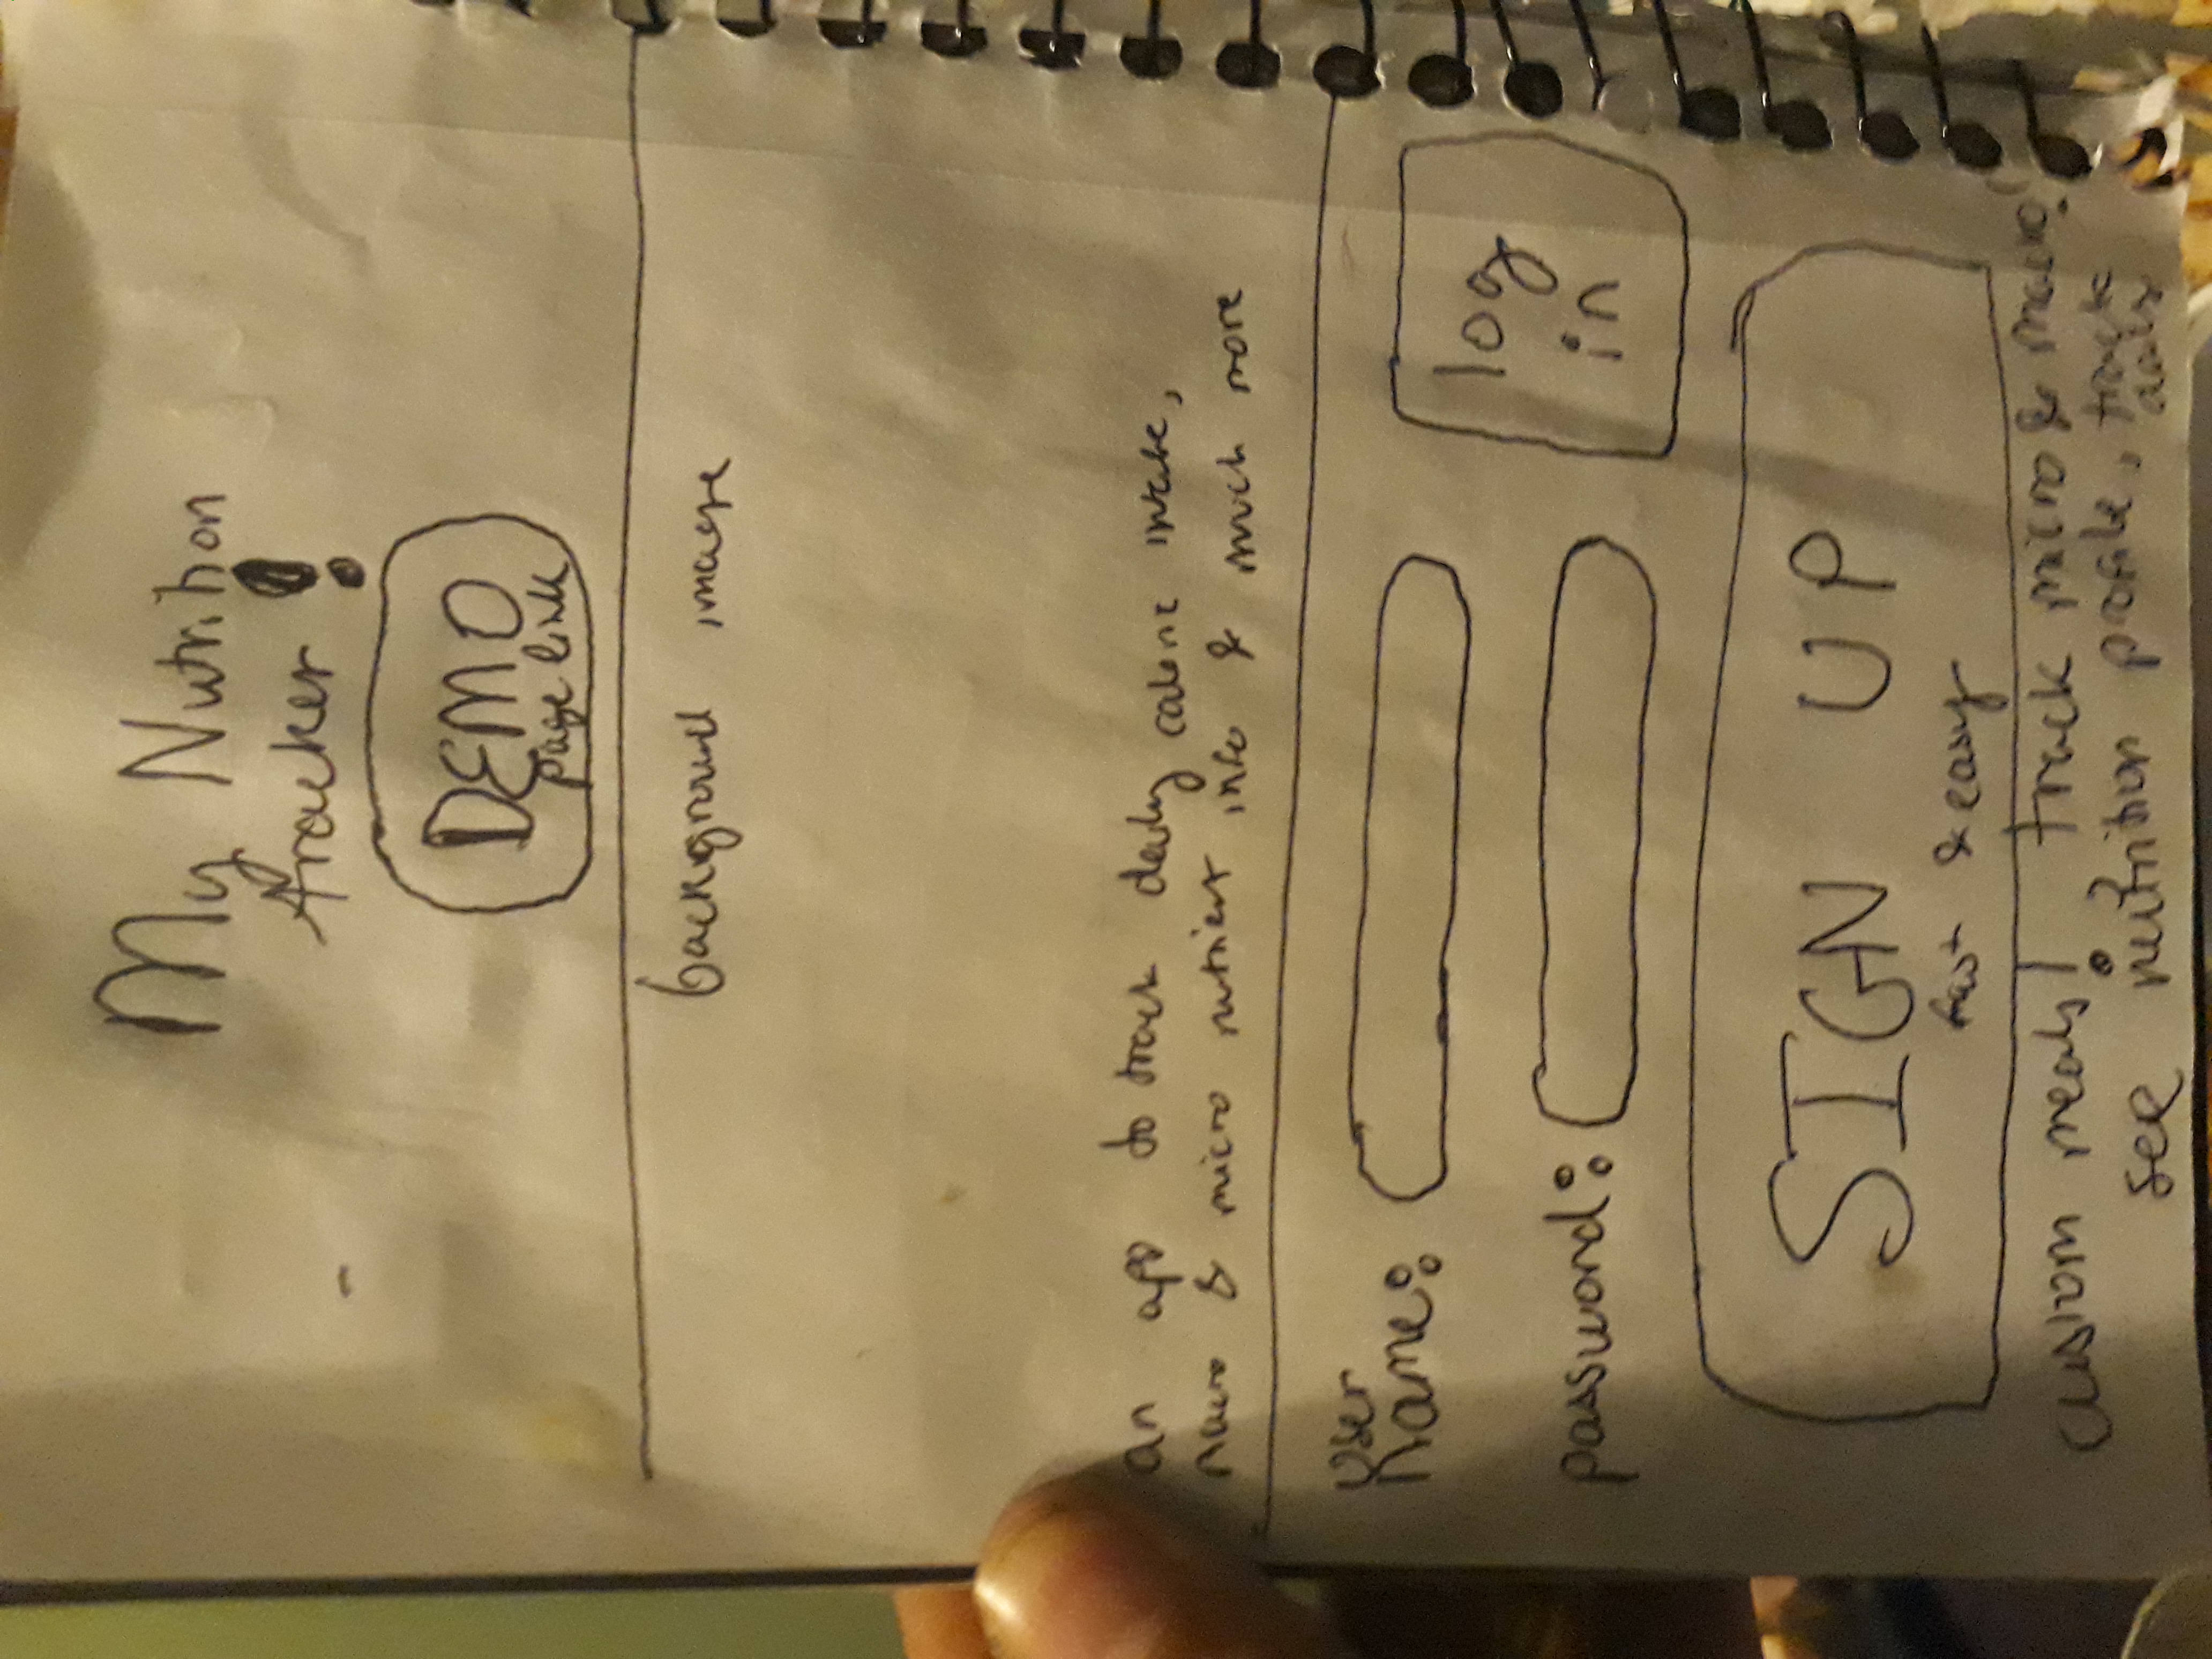 My Nutrition
tracker!
DEMO
page link
background image
an app to track daily caloric intake,
macro & micro nutrient info & much more
User
Name:
log
in
password:
SIGN UP
fast & easy
custom meals!, track micro & macro!
see nutrition profile, track